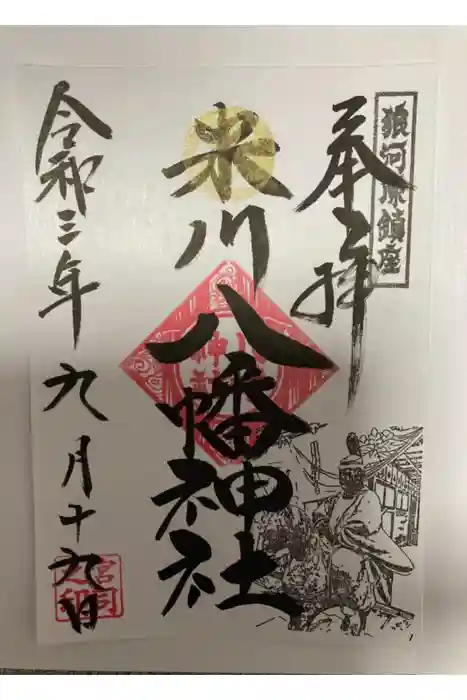 猿河原鎮座
奉拝
米川八幡神社
令和三年九月十九日
宮司